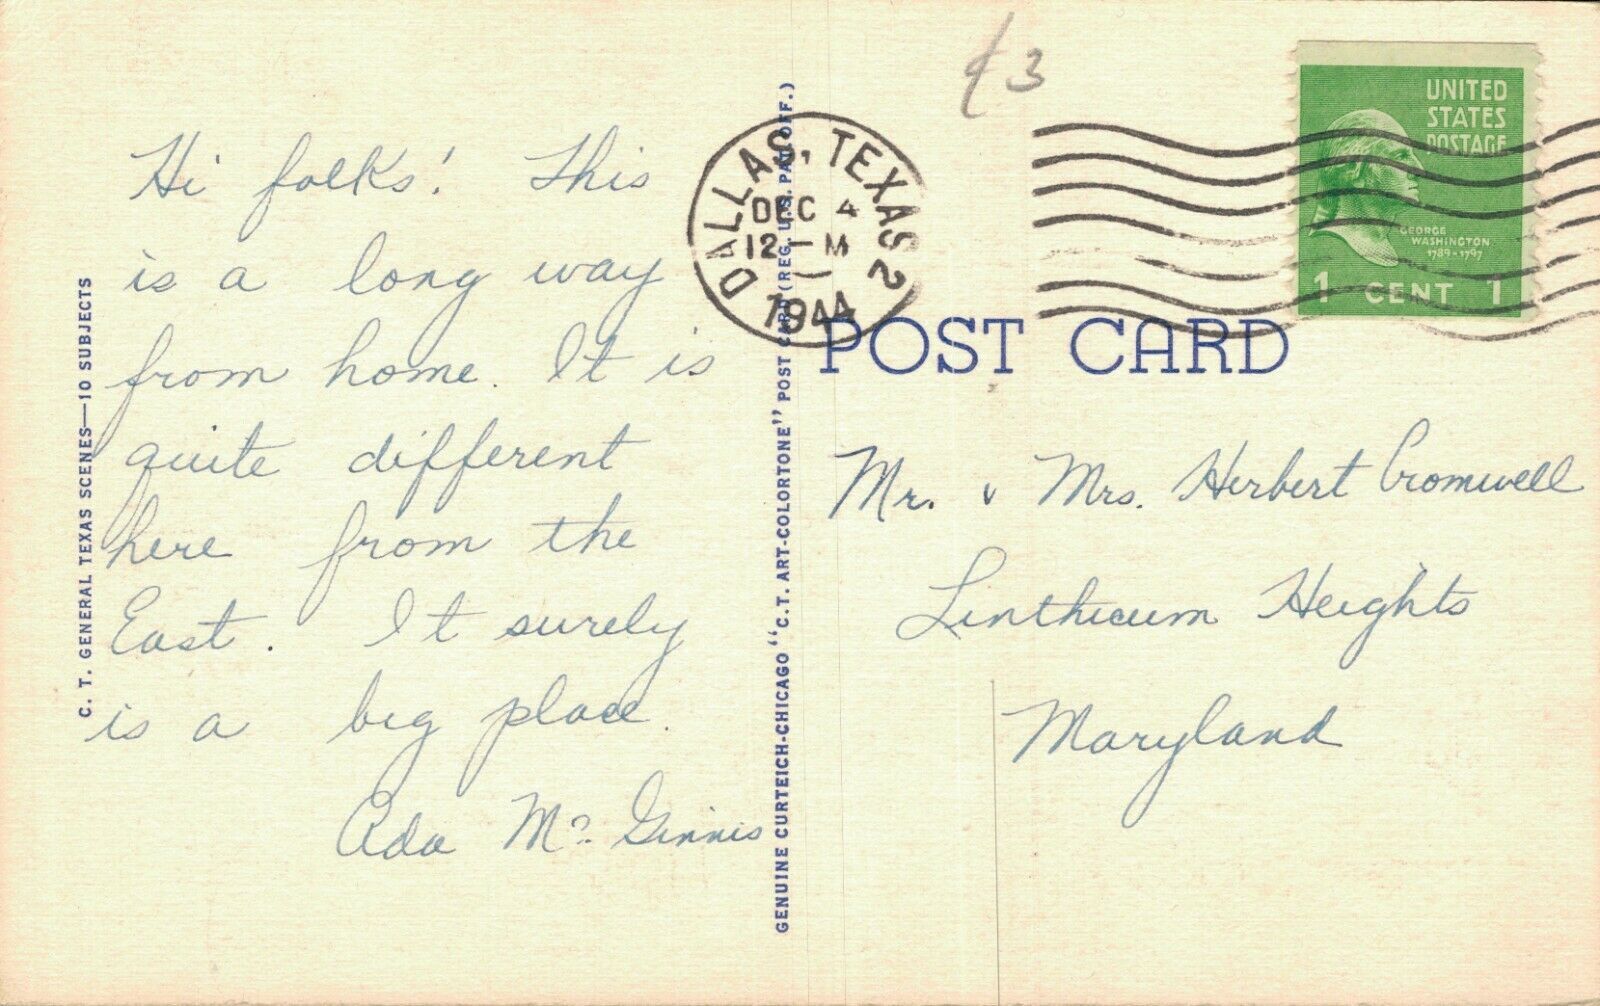 C. T. GENERAL TEXAS SCENES—10 SUBJECTS
Hi folks! This
is a long way
from home. It is
quite different
here from the
East. It surely
is a big place.
Ada Mc Ginnis
GENUINE CURTEICH-CHICAGO "C. T. ART-COLORTONE" POST CARD (REG. U.S. PAT. OFF.)
DALLAS, TEXAS 2
DEC 4
12 — M
1944
3
UNITED
STATES
POSTAGE
GEORGE
WASHINGTON
1789-1797
1 CENT 1
POST CARD
Mr. & Mrs. Herbert Cromwell
Linthicum Heights
Maryland